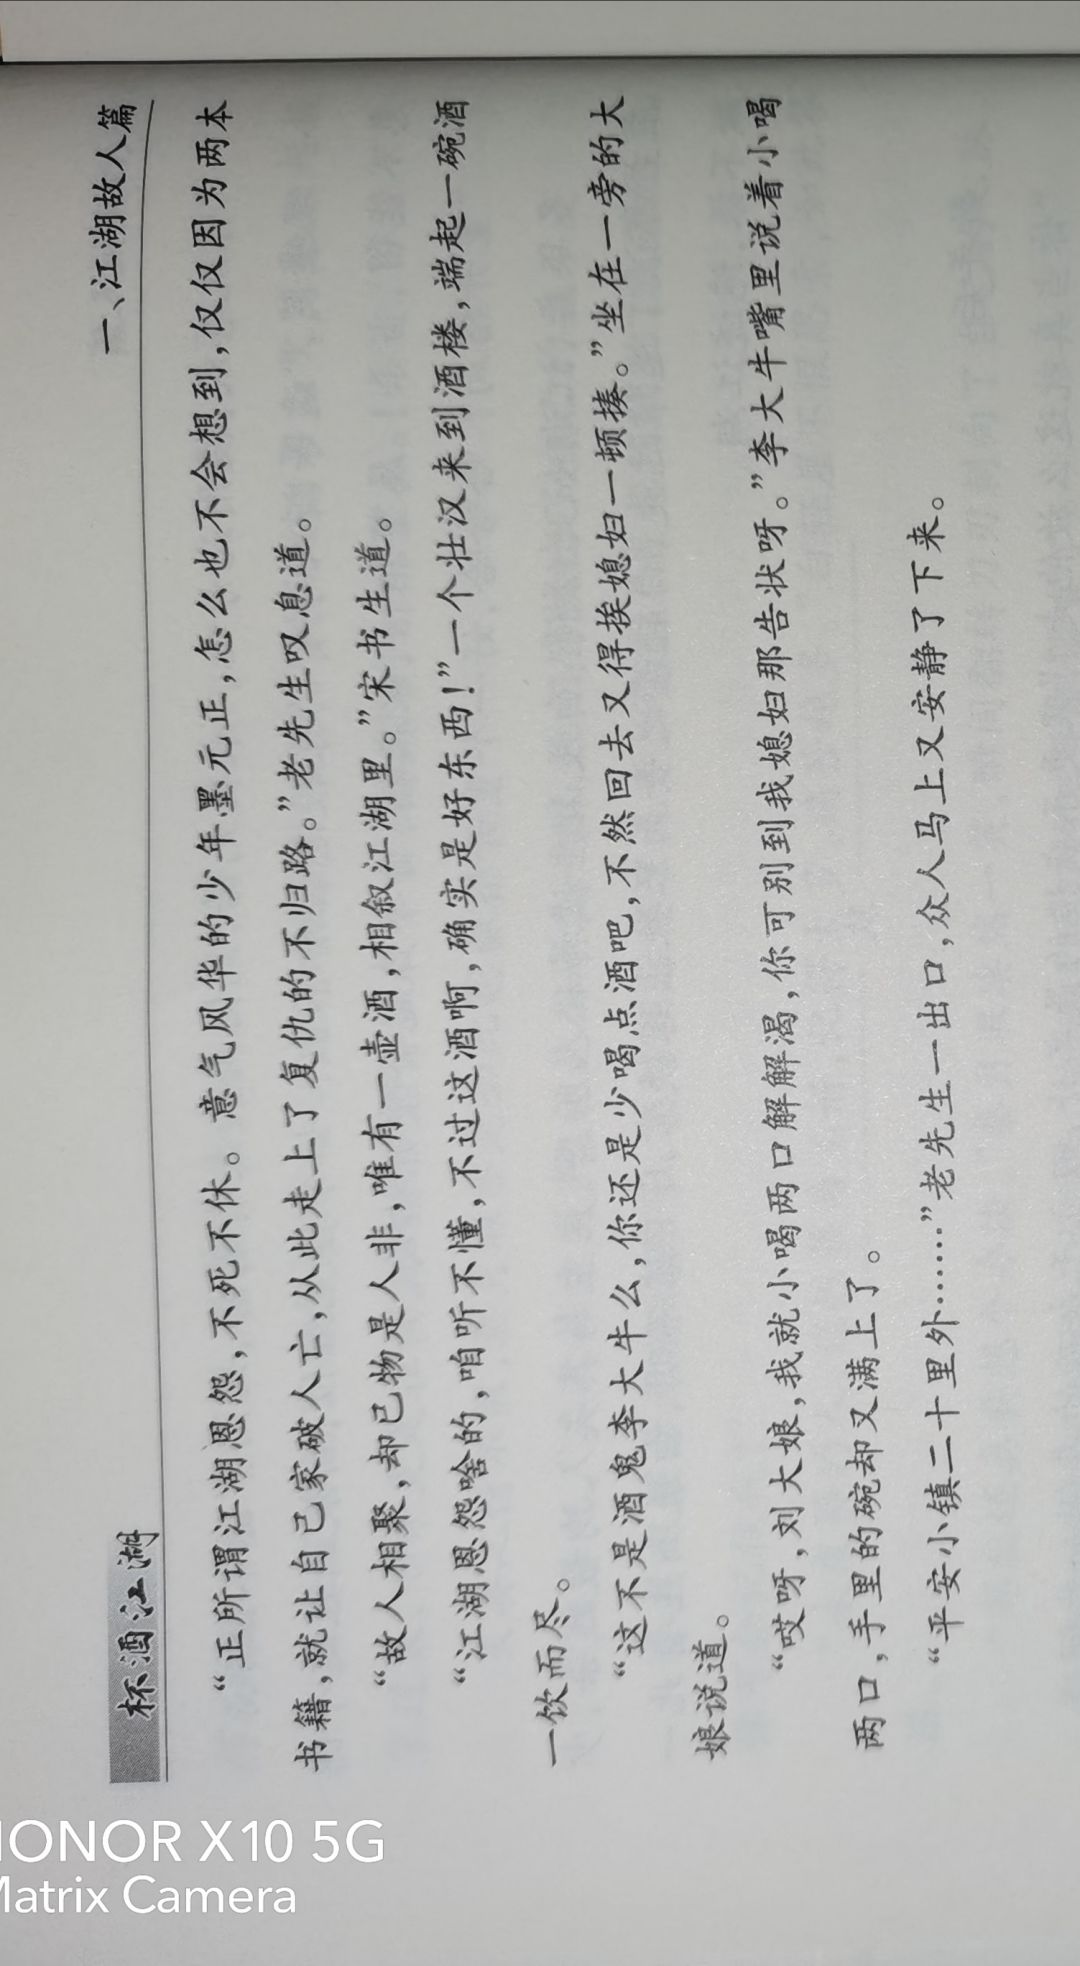 杯酒江湖
一、江湖故人篇
“正所谓江湖恩怨，不死不休。意气风华的少年墨元正，怎么也不会想到，仅仅因为两本
书籍，就让自己家破人亡，从此走上了复仇的不归路。”老先生叹息道。
“故人相聚，却已物是人非，唯有一壶酒，相叙江湖里。”宋书生道。
“江湖恩怨啥的，咱听不懂，不过这酒啊，确实是好东西！”一个壮汉来到酒楼，端起一碗酒
一饮而尽。
“这不是酒鬼李大牛么，你还是少喝点酒吧，不然回去又得挨媳妇一顿揍。”坐在一旁的大
娘说道。
“哎呀，刘大娘，我就小喝两口解解渴，你可别到我媳妇那告状呀。”李大牛嘴里说着小喝
两口，手里的碗却又满上了。
“平安小镇二十里外……”老先生一出口，众人马上又安静了下来。
HONOR X10 5G
Matrix Camera